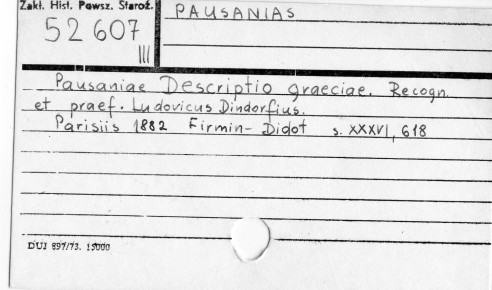 Zakł. Hist. Powsz. Staroż.
52 607
III
PAUSANIAS
Pausaniae Descriptio graeciae. Recogn.
et praef. Ludovicus Dindorfius.
Parisiis 1882 Firmin-Didot s. XXXVI, 618
DUJ 897/73. 15000